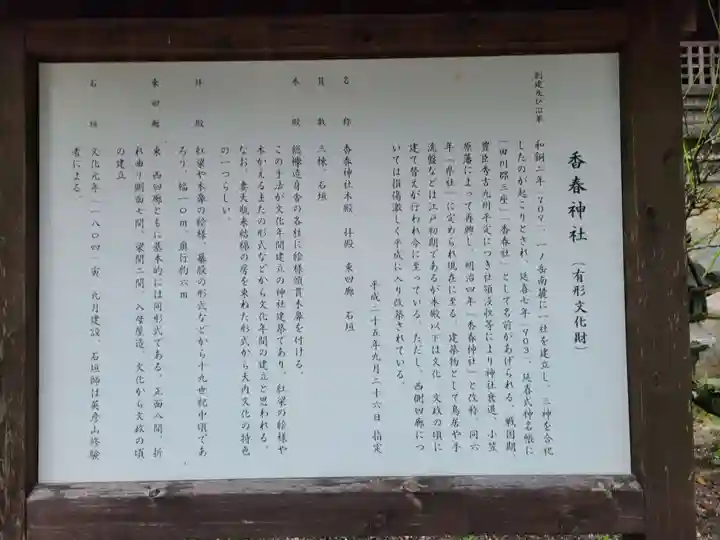 香春神社 (有形文化財)
創建及び沿革
和銅二年(709、一ノ岳南麓に一社を建立し、三神を合祀
したのが起こりとされ、延喜七年(903、延喜式神名帳に
「田川郡三座」「香春社」として名前があげられる、戦国期、
豊臣秀吉九州平定につき社領没収等により神社衰退、小笠
原藩によって再興し、明治四年「香春神社」と改称、同六
年「県社」に定められ現在に至る。建築物として鳥居や手
洗盤などは江戸初期であるが本殿以下は文化 文政の頃に
建て替えが行われ今に至っている。ただし、西側回廊につ
いては損傷激しく平成に入り改築されている。
平成二十五年九月二十六日 指定
名称 香春神社本殿 拝殿 東回廊 石垣
員数 三棟、石垣
本殿 総欅造身舎の各柱に絵様頭貫木鼻を付ける、
この手法が文化年間建立の神社建築であり、紅梁の絵様や
本かえるまたの形式などから文化年間の建立と思われる。
なお、妻大瓶束結綿の房を束ねた形式から大内文化の特色
の一つらしい。
拝殿 紅梁や木鼻の絵様、蟇股の形式などから十九世紀中頃であ
ろう、幅一〇m、奥行約六m
東回廊 東 西回廊ともに基本的には同形式である。正面八間、折
れ曲り側面七間、梁間二間、入母屋造、文化から文政の頃
の建立
石垣 文化元年(一八〇四)寅 九月建設、石垣師は英彦山修験
者による。